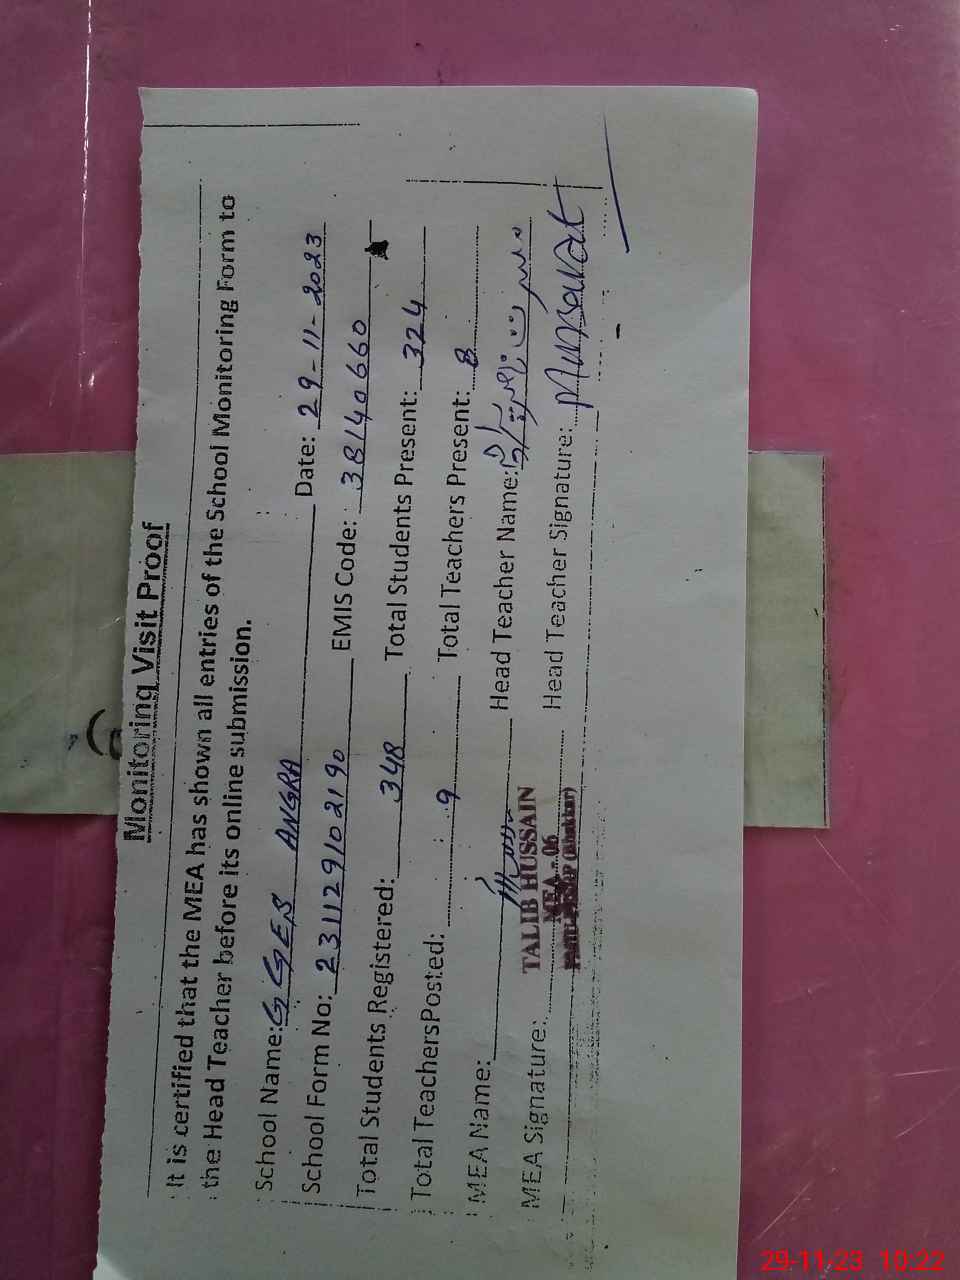 Monitoring Visit Proof
It is certified that the MEA has shown all entries of the School Monitoring Form to
the Head Teacher before its online submission.
School Name: GGES ANGRA Date: 29-11-2023
School Form No: 231129102190 EMIS Code: 38140660
Total Students Registered: 348 Total Students Present: 324
Total TeachersPosted: 9 Total Teachers Present: 8
MEA Name: Head Teacher Name: مسرت
TALIB HUSSAIN
MEA Signature: MEA - 06 Head Teacher Signature: Mussarat
(Bhakkar)
29-11-23 10:22